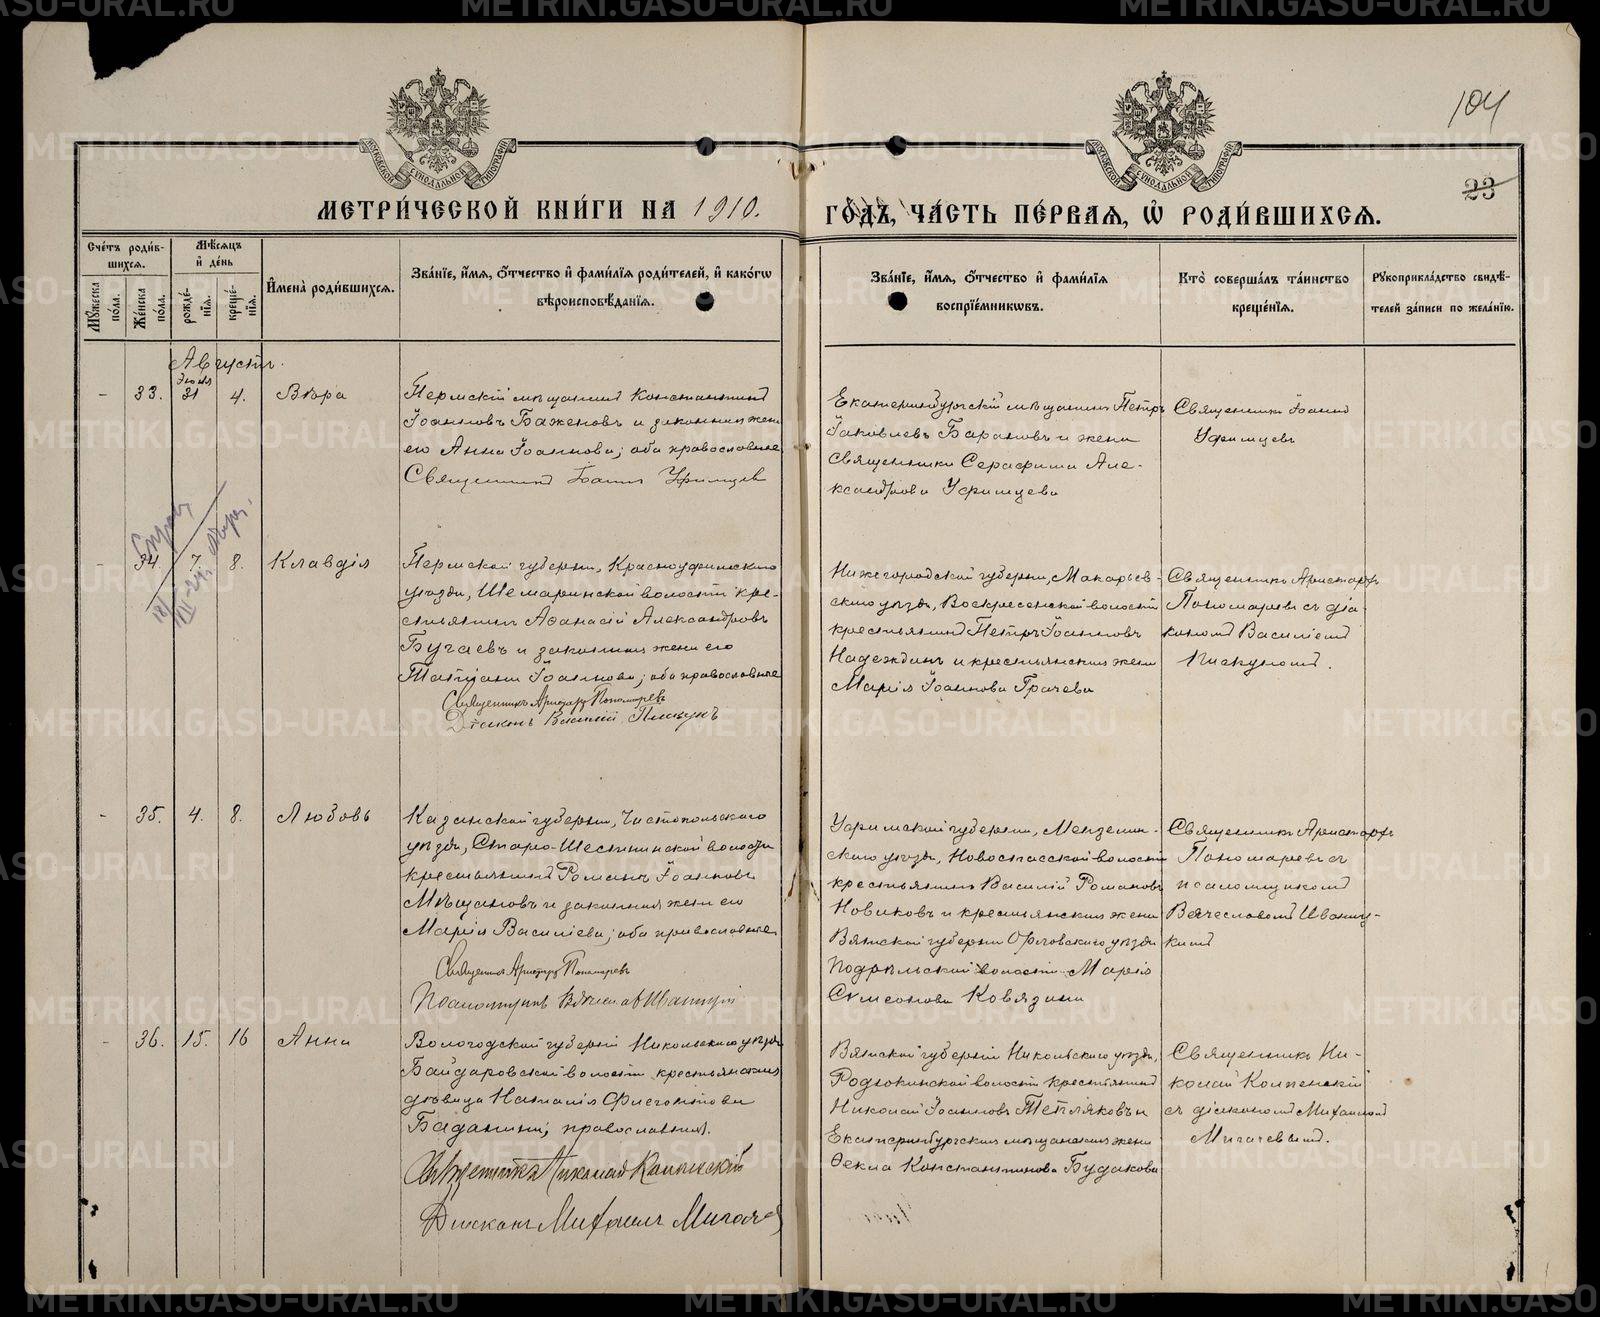 104
23
МЕТРИ́ЧЕСКОЙ КНИ́ГИ НА 1910.
ГО́ДЪ, ЧА́СТЬ ПЕ́РВАЯ, Ѡ҆ РОДИ́ВШИХСЯ.
Сче́тъ роди́вшихся.
Му́жеска по́ла.
Же́нска по́ла.
Мѣ́сяцъ и҆ де́нь
рожде́нїѧ.
креще́нїѧ.
И҆мена̀ роди́вшихся.
Зва́нїе, и҆́мѧ, ѻ҆́тчество и҆ фами́лїѧ роди́телей, и҆ како́гѡ
вѣроисповѣ́данїѧ.
Зва́нїе, и҆́мѧ, ѻ҆́тчество и҆ фами́лїѧ
воспрїе́мникѡвъ.
Кто̀ соверша́лъ та́инство
креще́нїѧ.
Рꙋкоприкла́дство свидѣ́-
телей за́писи по жела́нїю.
Августъ.
- 33. Іюля 31 4. Вѣра
Пермскій мѣщанинъ Константинъ
Іоанновъ Баженовъ и законная жена
его Анна Іоаннова; оба православные
Священникъ Іоаннъ Уфимцев
Екатеринбургскій мѣщанинъ Петръ
Іаковлевъ Барановъ и жена
священника Серафима Але-
ксандрова Уфимцева
Священникъ Іоаннъ
Уфимцевъ
- 34. 7. 8. Клавдія
Пермской губерніи, Красноуфимскаго
уѣзда, Шемаринской волости кре-
стьянинъ Аѳанасій Александровъ
Бугаевъ и законная жена его
Татіана Іоаннова; оба православные
Священникъ Аристархъ Пономаревъ
Діаконъ Василій Пискунъ
Нижегородской губерніи, Макарьев-
скаго уѣзда, Воскресенской волости
крестьянинъ Петръ Іоанновъ
Надеждинъ и крестьянская жена
Марія Іоаннова Грачева
Священникъ Аристархъ
Пономаревъ съ діа-
кономъ Василіемъ
Пискуномъ.
- 35. 4. 8. Любовь
Казанской губерніи, Чистопольскаго
уѣзда, Старо-Шешминской волости
крестьянинъ Романъ Іоанновъ
Мѣщановъ и законная жена его
Марія Василіева; оба православные
Священникъ Аристархъ Пономаревъ
Псаломщикъ Вячеславъ Иваницкій
Уфимской губерніи, Мензелин-
скаго уѣзда, Новоспасской волости
крестьянинъ Василій Романовъ
Новиковъ и крестьянская жена
Вятской губерніи Орловскаго уѣзда
Подрѣльской волости Марія
Симеонова Ковязина
Священникъ Аристархъ
Пономаревъ съ
псаломщикомъ
Вячеславомъ Иваниц-
кимъ
- 36. 15. 16 Анна
Вологодской губерніи Никольскаго уѣзда
Байдаровской волости крестьянская
дѣвица Наталія Фиегонтова
Баданина; православная.
Священникъ Николай Колпенскій
Діаконъ Михаилъ Мигачев
Вятской губерніи Никольскаго уѣзда,
Родюкинской волости крестьянинъ
Николай Іоанновъ Тепляковъ и
Екатеринбургская мѣщанская жена
Ѳекла Константинова Будакова
Священникъ Ни-
колай Колпенскій
съ діакономъ Михаиломъ
Мигачевымъ.
METRIKI.GASO-URAL.RU